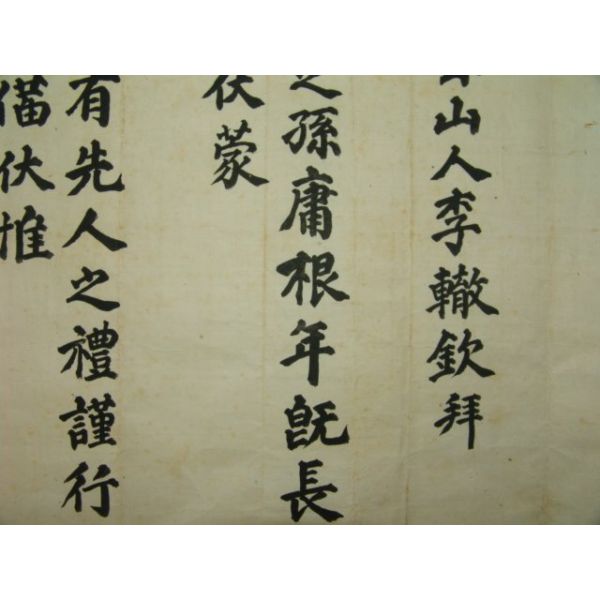 山人李轍欽拜
之孫庸根年旣長
伏蒙
有先人之禮謹行
伏惟